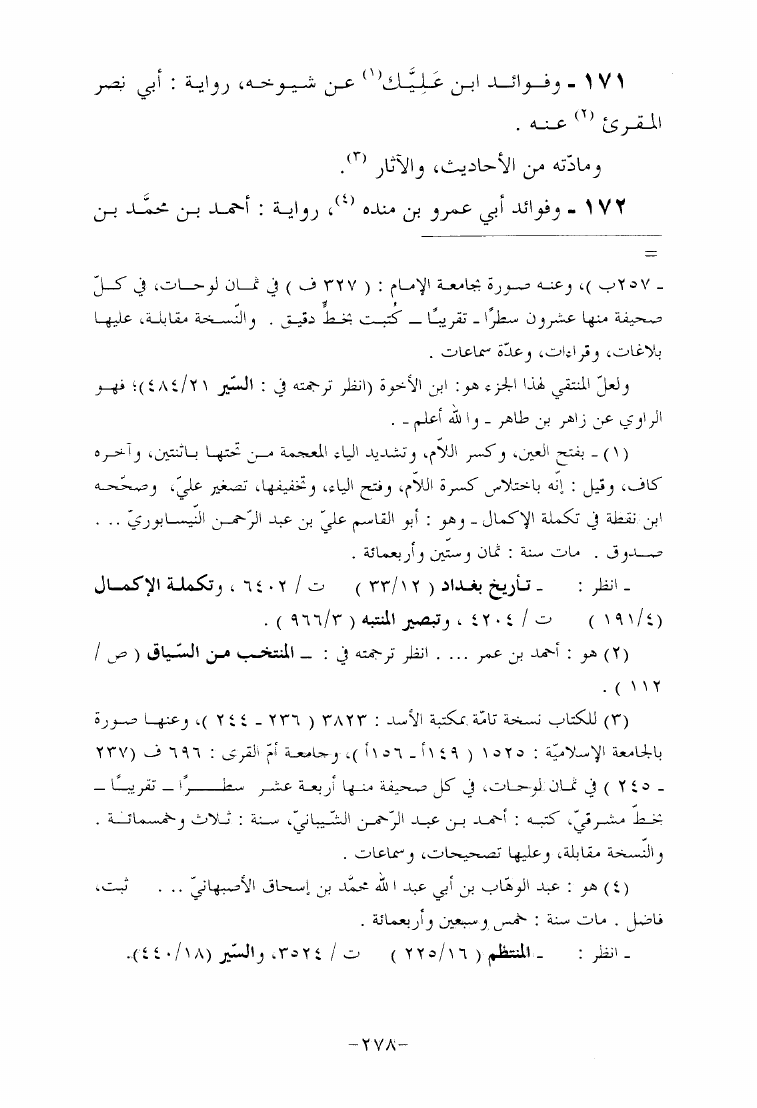 ١٧١ - وفوائد ابن عَلِيَّك(١) عن شيوخه، رواية : أبي نصر
المقرئ (٢) عنه .
ومادّته من الأحاديث، والآثار (٣).
١٧٢ - وفوائد أبي عمرو بن منده (٤)، رواية : أحمد بن محمَّد بن
=
- ٢٥٧ب )، وعنه صورة بجامعة الإمام : ( ٣٢٧ ف ) في ثمان لوحات، في كلّ
صحيفة منها عشرون سطرًا - تقريبًا – كُتبت بخطٍّ دقيق . والنّسخة مقابلة، عليها
بلاغات، وقراءات، وعدّة سماعات .
ولعلّ المنتقي لهذا الجزء هو: ابن الأخوة (انظر ترجمته في : السّير ٤٨٤/٢١)؛ فهو
الراوي عن زاهر بن طاهر - والله أعلم - .
(١) - بفتح العين، وكسر اللاّم، وتشديد الياء المعجمة من تحتها باثنتين، وآخره
كاف، وقيل : إنّه باختلاس كسرة اللاّم، وفتح الياء، وتخفيفها، تصغير عليّ، وصحّحه
ابن نقطة في تكملة الإكمال - وهو : أبو القاسم عليّ بن عبد الرّحمن النّيسابوريّ . . .
صدوق . مات سنة : ثمان وستّين وأربعمائة .
- انظر : - تأريخ بغداد ( ٣٣/١٢ ) ت / ٦٤٠٢ ، وتكملة الإكمال
(١٩١/٤ ) ت / ٤٢٠٤ ، وتبصير المنتبه ( ٩٦٦/٣ ) .
(٢) هو : أحمد بن عمر ... . انظر ترجمته في : – المنتخب من السّياق ( ص /
١١٢ ) .
(٣) للكتاب نسخة تامّة بمكتبة الأسد : ٣٨٢٣ ( ٢٣٦ - ٢٤٤ )، وعنها صورة
بالجامعة الإسلاميّة : ١٥٢٥ ( ١٤٩أ - ١٥٦أ )، وجامعة أمّ القرى : ٦٩٦ ف (٢٣٧
- ٢٤٥ ) في ثمان لوحات، في كل صحيفة منها أربعة عشر سطرًا – تقريبًا –
بخطّ مشرقيّ، كتبه : أحمد بن عبد الرّحمن الشّيبانيّ، سنة : ثلاث وخمسمائة .
والنّسخة مقابلة، وعليها تصحيحات، وسماعات .
(٤) هو : عبد الوهّاب بن أبي عبد الله محمّد بن إسحاق الأصبهانيّ . . . ثبت،
فاضل . مات سنة : خمس وسبعين وأربعمائة .
- انظر : - المنتظم ( ٢٢٥/١٦ ) ت / ٣٥٢٤، والسّير (٤٤٠/١٨).
-٢٧٨-